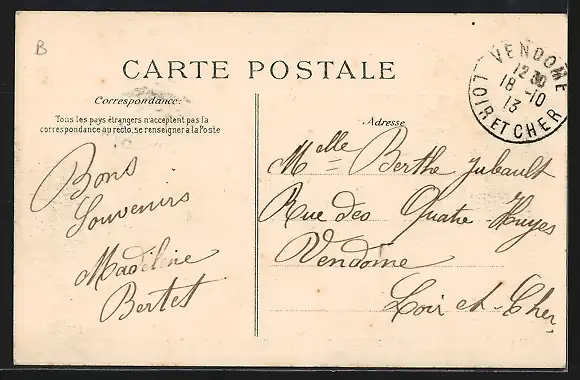 B
CARTE POSTALE
Correspondance:
Tous les pays étrangers n'acceptent pas la
correspondance au recto, se renseigner à la Poste
Bons
Souvenirs
Madeleine
Bertet
Adresse
Melle Berthe Jubault
Rue des Quatre Huyes
Vendome
Loir et Cher,
VENDOME
12 30
18 - 10
13
LOIR ET CHER